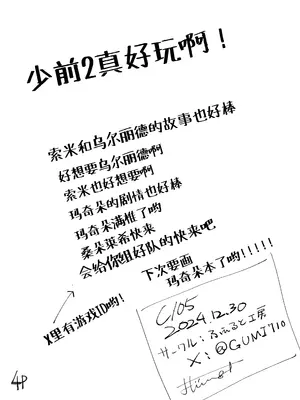 少前2真好玩啊！
索米和乌尔丽德的故事也好棒
好想要乌尔丽德啊
索米也好想要啊
玛奇朵的剧情也好棒
玛奇朵满椎了哟
桑朵莱希快来
会给你组好队的快来吧
下次要画
玛奇朵本了哟!!!!!
X里有游戏ID哟!
C105
2024.12.30
サークル：るふると工房
X：@GUMI710
4P